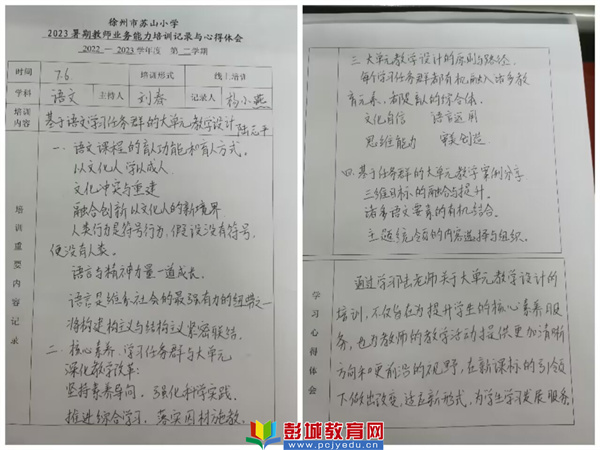 徐州市苏山小学
2023暑期教师业务能力培训记录与心得体会
2022 — 2023学年度 第二学期
时间 7.6 培训形式 线上培训
学科 语文 主持人 刘春 记录人 杨小燕
培训内容 基于语文学习任务群的大单元教学设计 陆志平
培训重要内容记录
一、语文课程的育人功能和育人方式。
以文化人 学以成人.
文化冲突与重建
融合创新 以文化人的新境界
人类行为是符号行为,假设没有符号,
便没有人类。
语言与精神力量一道成长。
语言是维系社会的最强有力的纽带之一
将构建主义与结构主义紧密联结。
二、核心素养、学习任务群与大单元
深化教学改革:
坚持素养导向, 强化科学实践,
推进综合学习, 落实因材施教.
三、大单元教学设计的原则与路径.
每个学习任务群都有机融入诸多教
育元素,
文化自信 语言运用
思维能力 审美创造.
四、基于任务群的大单元教学案例分享
三维目标的融合与提升.
诸多语文要素的有机结合.
主题统领的内容选择与组织.
学习心得体会
通过学习陆老师关于大单元教学设计的
培训,不仅旨在为提升学生的核心素养服
务,也为教师的教学活动提供更加清晰
方向和更前沿的视野,在新课标的引领
下做出改变,适应新形式,为学生学习发展服务.
彭城教育网
www.pcjyedu.cn